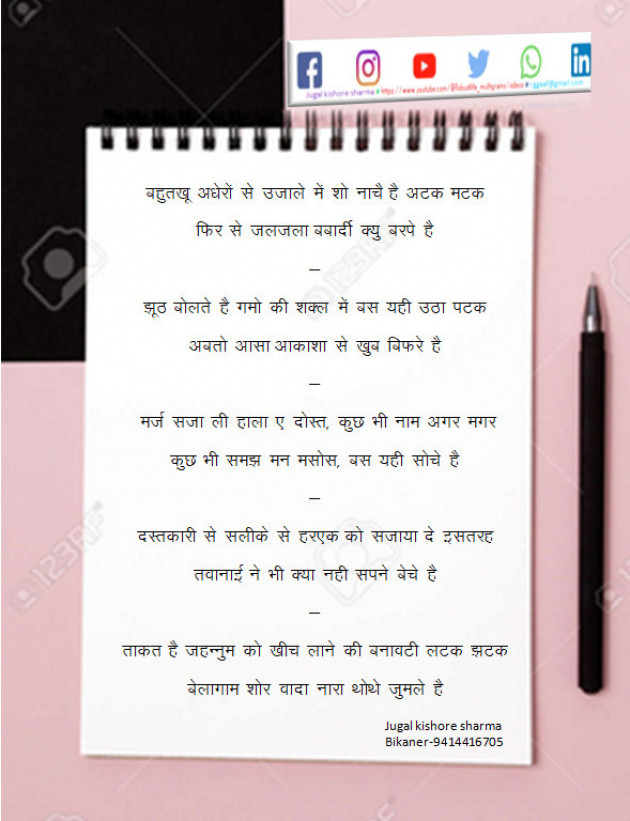 Jugal kishore sharma
बहुतखू अधेरों से उजाले में शो नाचै है अटक मटक
फिर से जलजला बबार्दी क्यु बरपे है
–
झूठ बोलते है गमो की शक्ल में बस यही उठा पटक
अबतो आसा आकाशा से खुब बिफरे है
–
मर्ज सजा ली हाला ए दोस्त, कुछ भी नाम अगर मगर
कुछ भी समझ मन मसोस, बस यही सोचे है
–
दस्तकारी से सलीके से हरएक को सजाया दे इसतरह
तवानाई ने भी क्या नही सपने बेचे है
–
ताकत है जहन्नुम को खीच लाने की बनावटी लटक झटक
बेलागाम शोर वादा नारा थोथे जुमले है
Jugal kishore sharma
Bikaner-9414416705
123RF
123RF